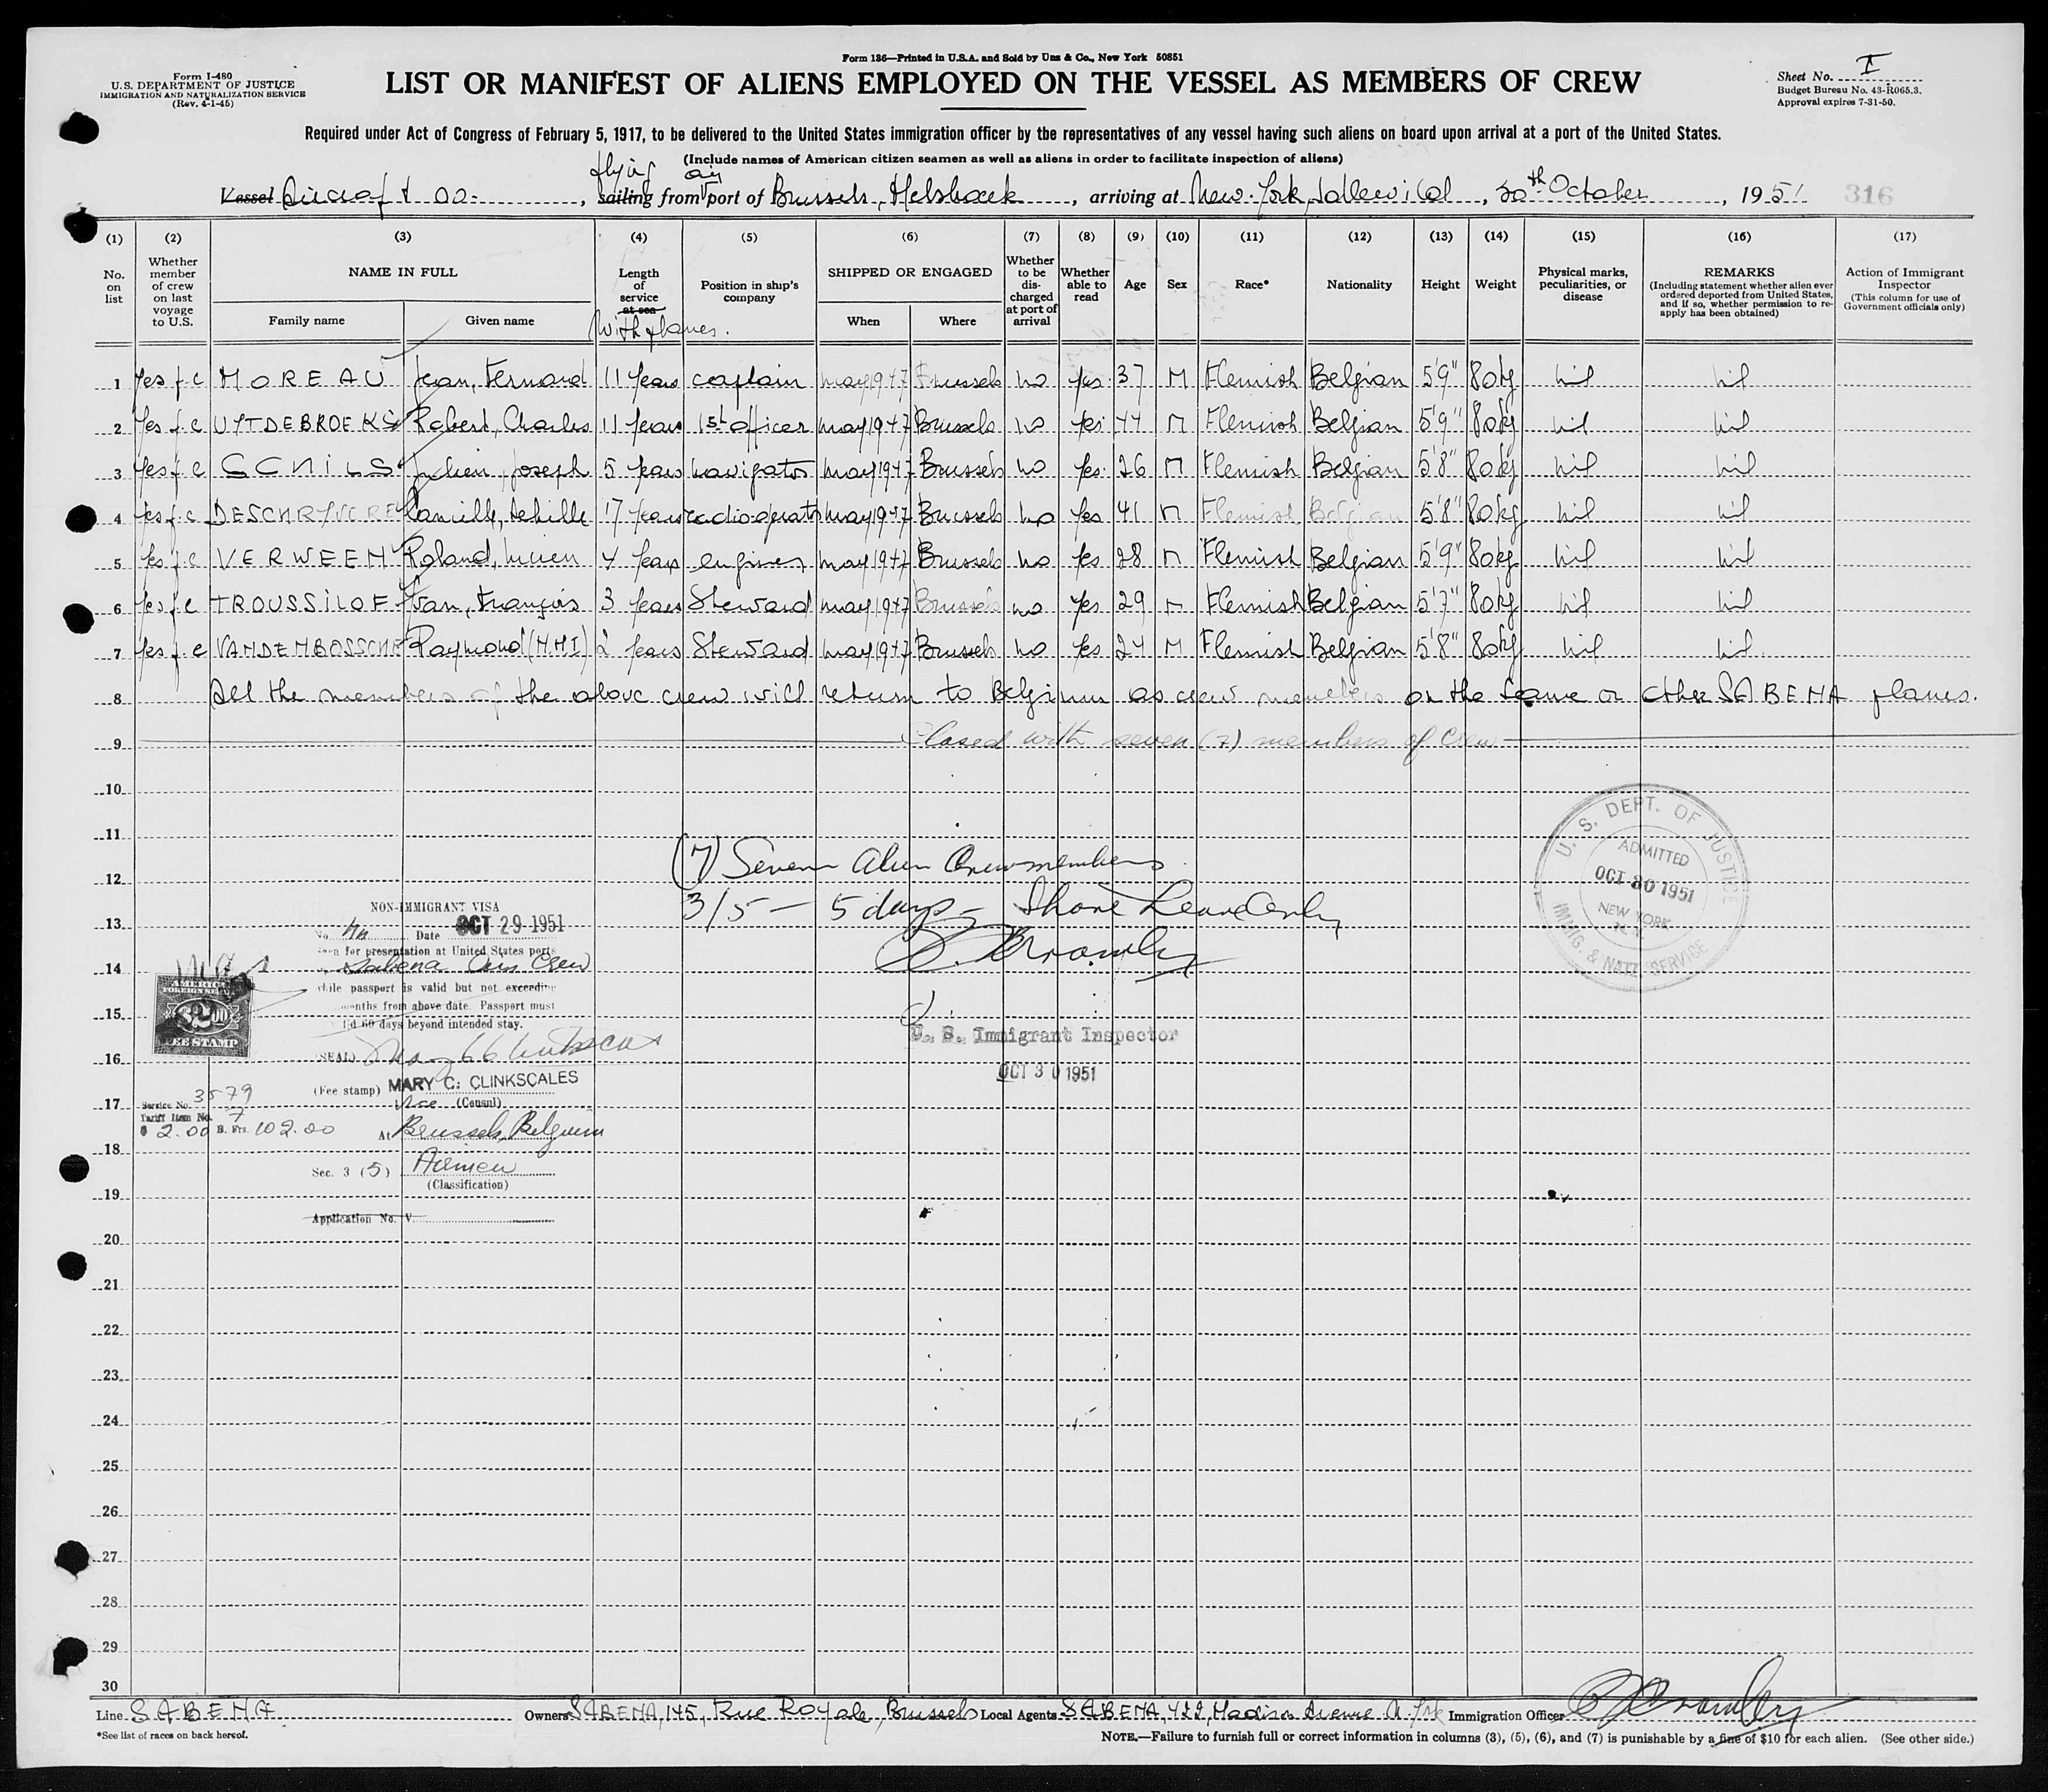 Form 136—Printed in U.S.A. and Sold by Unz & Co., New York 50851
Form I-480
U.S. DEPARTMENT OF JUSTICE
IMMIGRATION AND NATURALIZATION SERVICE
(Rev. 4-1-45)
LIST OR MANIFEST OF ALIENS EMPLOYED ON THE VESSEL AS MEMBERS OF CREW
Sheet No. I
Budget Bureau No. 43-R065.3.
Approval expires 7-31-50.
Required under Act of Congress of February 5, 1917, to be delivered to the United States immigration officer by the representatives of any vessel having such aliens on board upon arrival at a port of the United States.
(Include names of American citizen seamen as well as aliens in order to facilitate inspection of aliens)
flying air
Vessel Aircraft OO-, sailing from port of Brussels, Melsbroek, arriving at New-York, Idlewild, 30th October, 1951 316
(1) (2) (3) (4) (5) (6) (7) (8) (9) (10) (11) (12) (13) (14) (15) (16) (17)
No. on list
Whether member of crew on last voyage to U.S.
NAME IN FULL
Family name Given name
Length of service at sea
With planes.
Position in ship's company
SHIPPED OR ENGAGED
When Where
Whether to be discharged at port of arrival
Whether able to read
Age Sex Race* Nationality Height Weight
Physical marks, peculiarities, or disease
REMARKS
(Including statement whether alien ever ordered deported from United States, and if so, whether permission to reapply has been obtained)
Action of Immigrant Inspector
(This column for use of Government officials only)
1 Yes f.c MOREAU Jean, Fernand 11 Years captain may 1947 Brussels no yes 37 M Flemish Belgian 5'9" 80kg nil nil
2 Yes f.c UYTDEBROEKS Robert, Charles 11 Years 1st officer may 1947 Brussels no yes 44 M Flemish Belgian 5'9" 80kg nil nil
3 Yes f.c Julien, Joseph 5 Years navigator may 1947 Brussels no yes 26 M Flemish Belgian 5'8" 80kg nil nil
4 Yes f.c Camille, Achille 17 Years radio-operator may 1947 Brussels no yes 41 M Flemish Belgian 5'8" 80kg nil nil
5 Yes f.c Roland, Lucien 4 Years engineer may 1947 Brussels no yes 28 M Flemish Belgian 5'9" 80kg nil nil
6 Yes f.c Ivan, François 3 Years Steward may 1947 Brussels no yes 29 M Flemish Belgian 5'7" 80kg nil nil
7 Yes f.c VANDENBOSSCHE Raymond (NMI) 2 Years Steward may 1947 Brussels no yes 24 M Flemish Belgian 5'8" 80kg nil nil
8 All the members of the above crew will return to Belgium as crew members on the same or other SABENA planes.
9 Closed with seven (7) members of crew
10
11
(7) Seven alien Crewmembers
12
3/5 — 5 days — Shore Leave Only
13
14
15
16
17
18
19
20
21
22
23
24
25
26
27
28
29
30
U. S. DEPT. OF JUSTICE
ADMITTED
OCT 30 1951
NEW YORK
N.Y.
IMMIG. & NATZ. SERVICE
U. S. Immigrant Inspector
OCT 30 1951
NON-IMMIGRANT VISA
No. Date OCT 29 1951
Seen for presentation at United States ports
Sabena Air Crew
while passport is valid but not exceeding
months from above date. Passport must
60 days beyond intended stay.
(SEAL)
(Fee stamp) MARY C. CLINKSCALES
Vice (Consul)
At Brussels, Belgium
Sec. 3 (5) Airmen
(Classification)
Application No. V
AMERICAN
FOREIGN SERVICE
$2.00
FEE STAMP
Service No. 3579
Tariff Item No. 7
$ 2.00 B. Frs. 102.00
Line SABENA Owners SABENA, 145, Rue Royale, Brussels Local Agents SABENA, 422, Madison Avenue N. York Immigration Officer
*See list of races on back hereof.
NOTE.—Failure to furnish full or correct information in columns (3), (5), (6), and (7) is punishable by a fine of $10 for each alien. (See other side.)